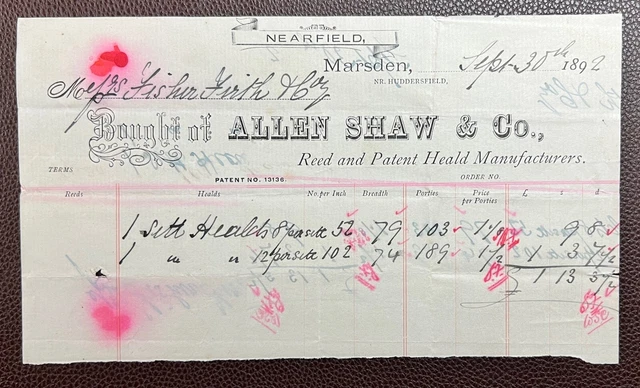 NEARFIELD,
Marsden, Sept 30th 1892
NR. HUDDERSFIELD.
Messrs Fisher Firth & Coy
Bought of ALLEN SHAW & Co.,
Reed and Patent Heald Manufacturers.
TERMS PATENT NO. 13136. ORDER NO.
Reeds Healds No. per Inch Breadth Porties Price per Porties £ s d
1 sett Healds 8 per sett 52 79 103 1 1/2 9 8
1 " " 12 per sett 102 74 189 1 1/2 1 3 7 1/2
1 13 3 1/2